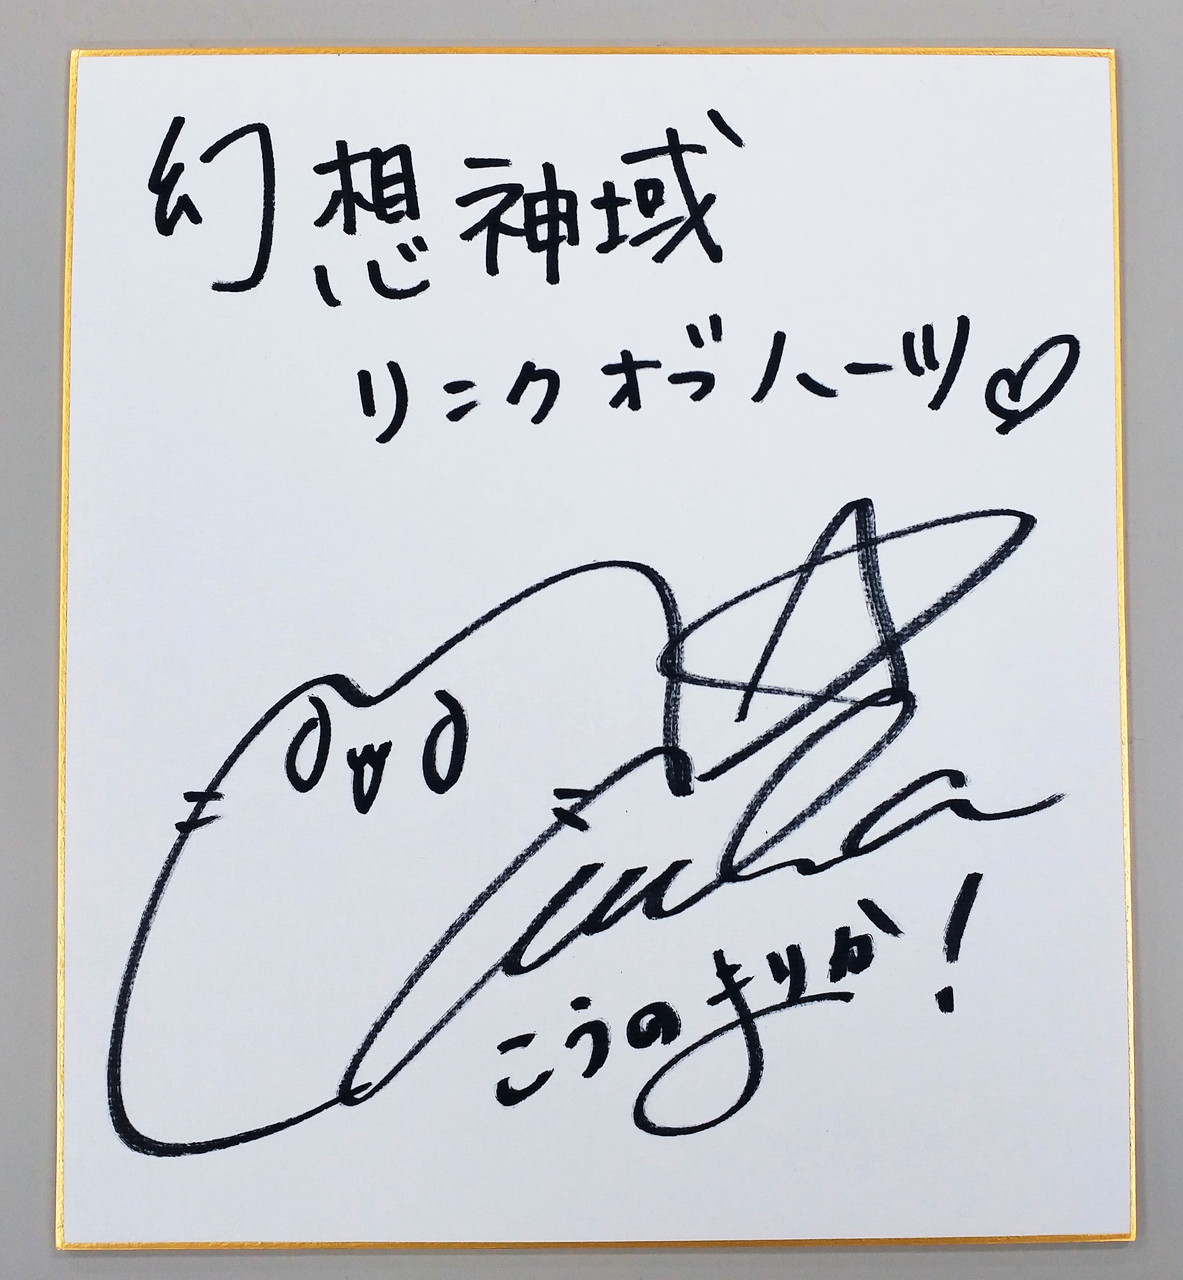 幻想神域
リンクオブハーツ♡
こうのまりか!